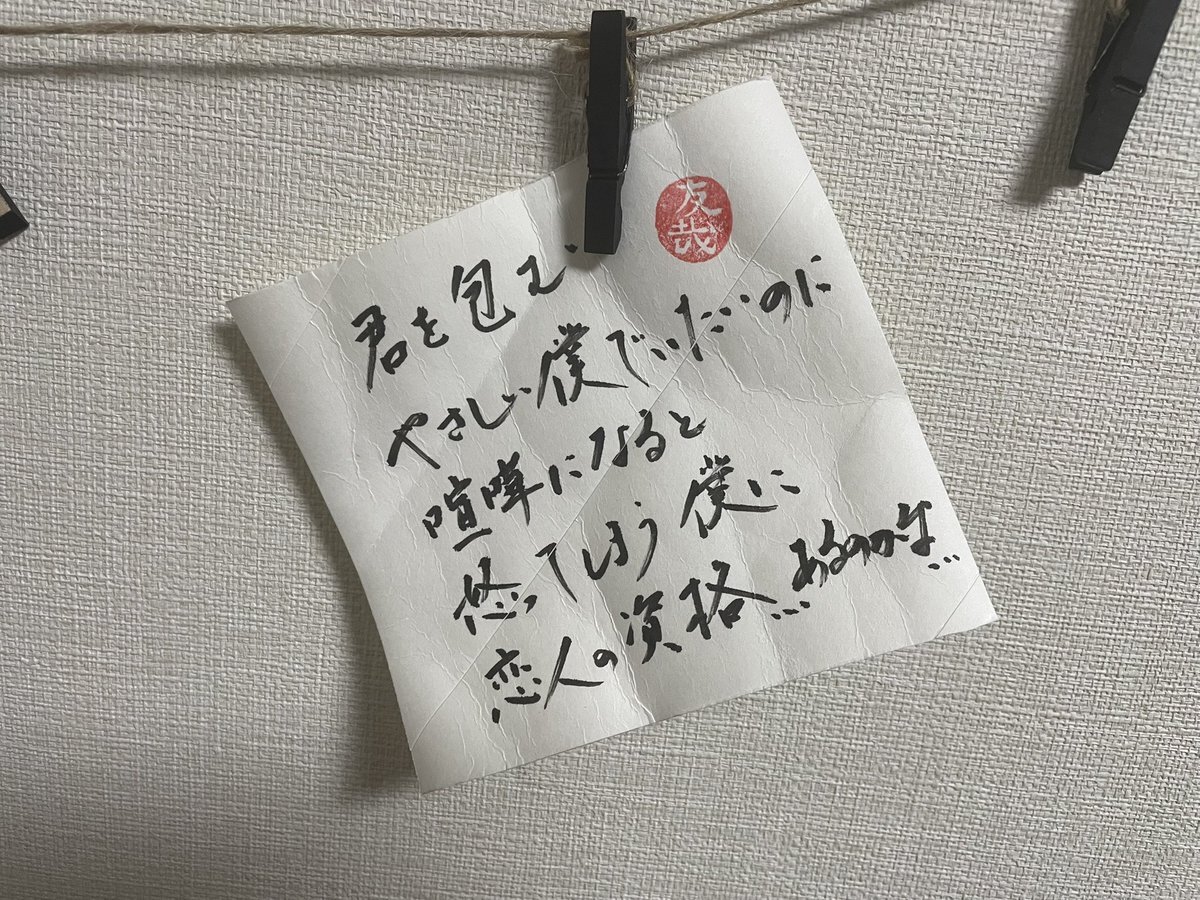 友哉
君を包む
やさしい僕でいたいのに
喧嘩になると
怒ってしまう僕に
恋人の資格…あるのかな…